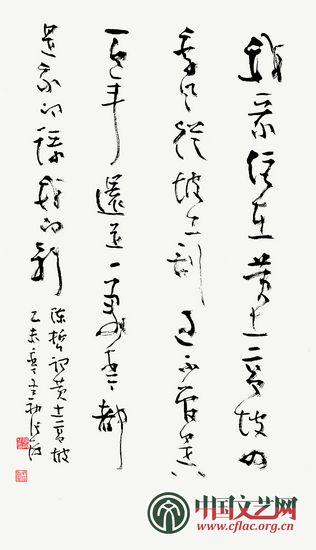 我家住在黄土高坡四
季风从坡上刮过不管是八
百年还是一万年都
是我的歌我的歌
陈哲词黄土高坡
乙未
中国文艺网
www.cflac.org.cn